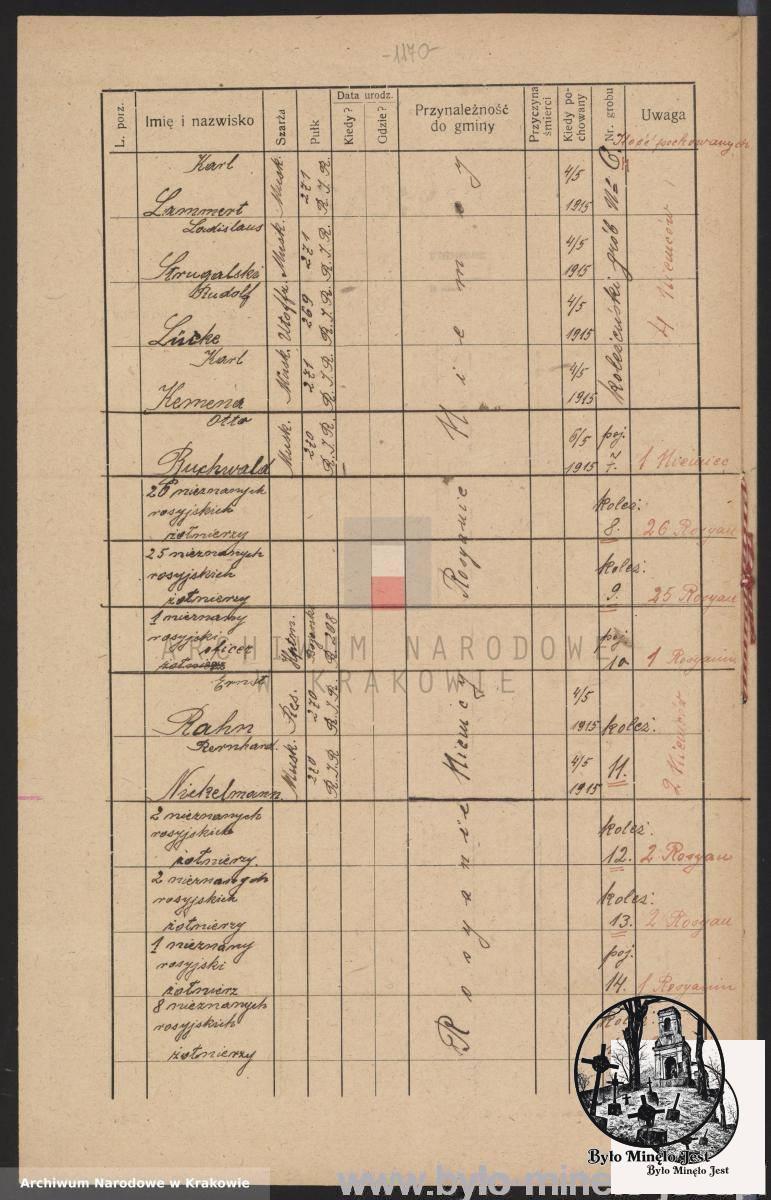 -1170-
L. porz.
Imię i nazwisko
Szarża
Pułk
Data urodz.
Kiedy?
Gdzie?
Przynależność do gminy
Przyczyna śmierci
Kiedy pochowany
Nr. grobu
Uwaga
Ilość pochowanych
Karl Lammert Musk. 271 R.I.R. 4/5 1915
Ladislaus Strugalski Musk. 271 R.I.R. 4/5 1915
Rudolf Lücke Utoffz. 269 R.I.R. 4/5 1915
Karl Kemena Musk. 271 R.I.R. 4/5 1915
Niemcy
grób № 6
4 Niemców
Otto Buchwald Musk. 270 R.I.R. 6/5 1915 poj. 7. 1 Niemiec
26 nieznanych rosyjskich żołnierzy
koleż. 8. 26 Rosyan
25 nieznanych rosyjskich żołnierzy
koleż. 9. 25 Rosyan
Rosyanie
1 nieznany rosyjski oficer żołnierz
Hptm. R. 208
poj. 10 1 Rosyanin
Ernst Rahn Res. 270 R.I.R. 4/5 1915
Bernhard Nickelmann Musk. 270 R.I.R. 4/5 1915
Niemcy
koleż. 11. 2 Niemców
2 nieznanych rosyjskich żołnierzy
koleż. 12. 2 Rosyan
2 nieznanych rosyjskich żołnierzy
koleż. 13. 2 Rosyan
1 nieznany rosyjski żołnierz
poj. 14. 1 Rosyanin
8 nieznanych rosyjskich żołnierzy
koleż.
Rosyanie
ARCHIWUM NARODOWE
W KRAKOWIE
Było Minęło Jest
Było Minęło Jest
Archiwum Narodowe w Krakowie
www.bylo-mine